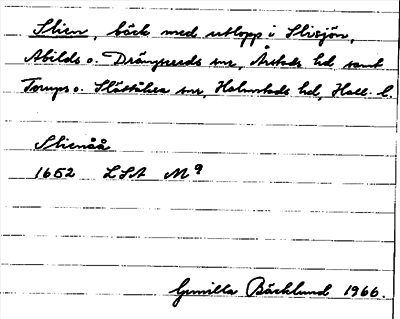 Stien, bäck med utlopp i Slissjön,
Abilds o. Drängsereds snr, Årstads hd samt
Torups o. Slättåkra snr, Halmstads hd, Hall. l.
Stienåå
1652 LSA M 9
Gunilla Bäcklund 1966.